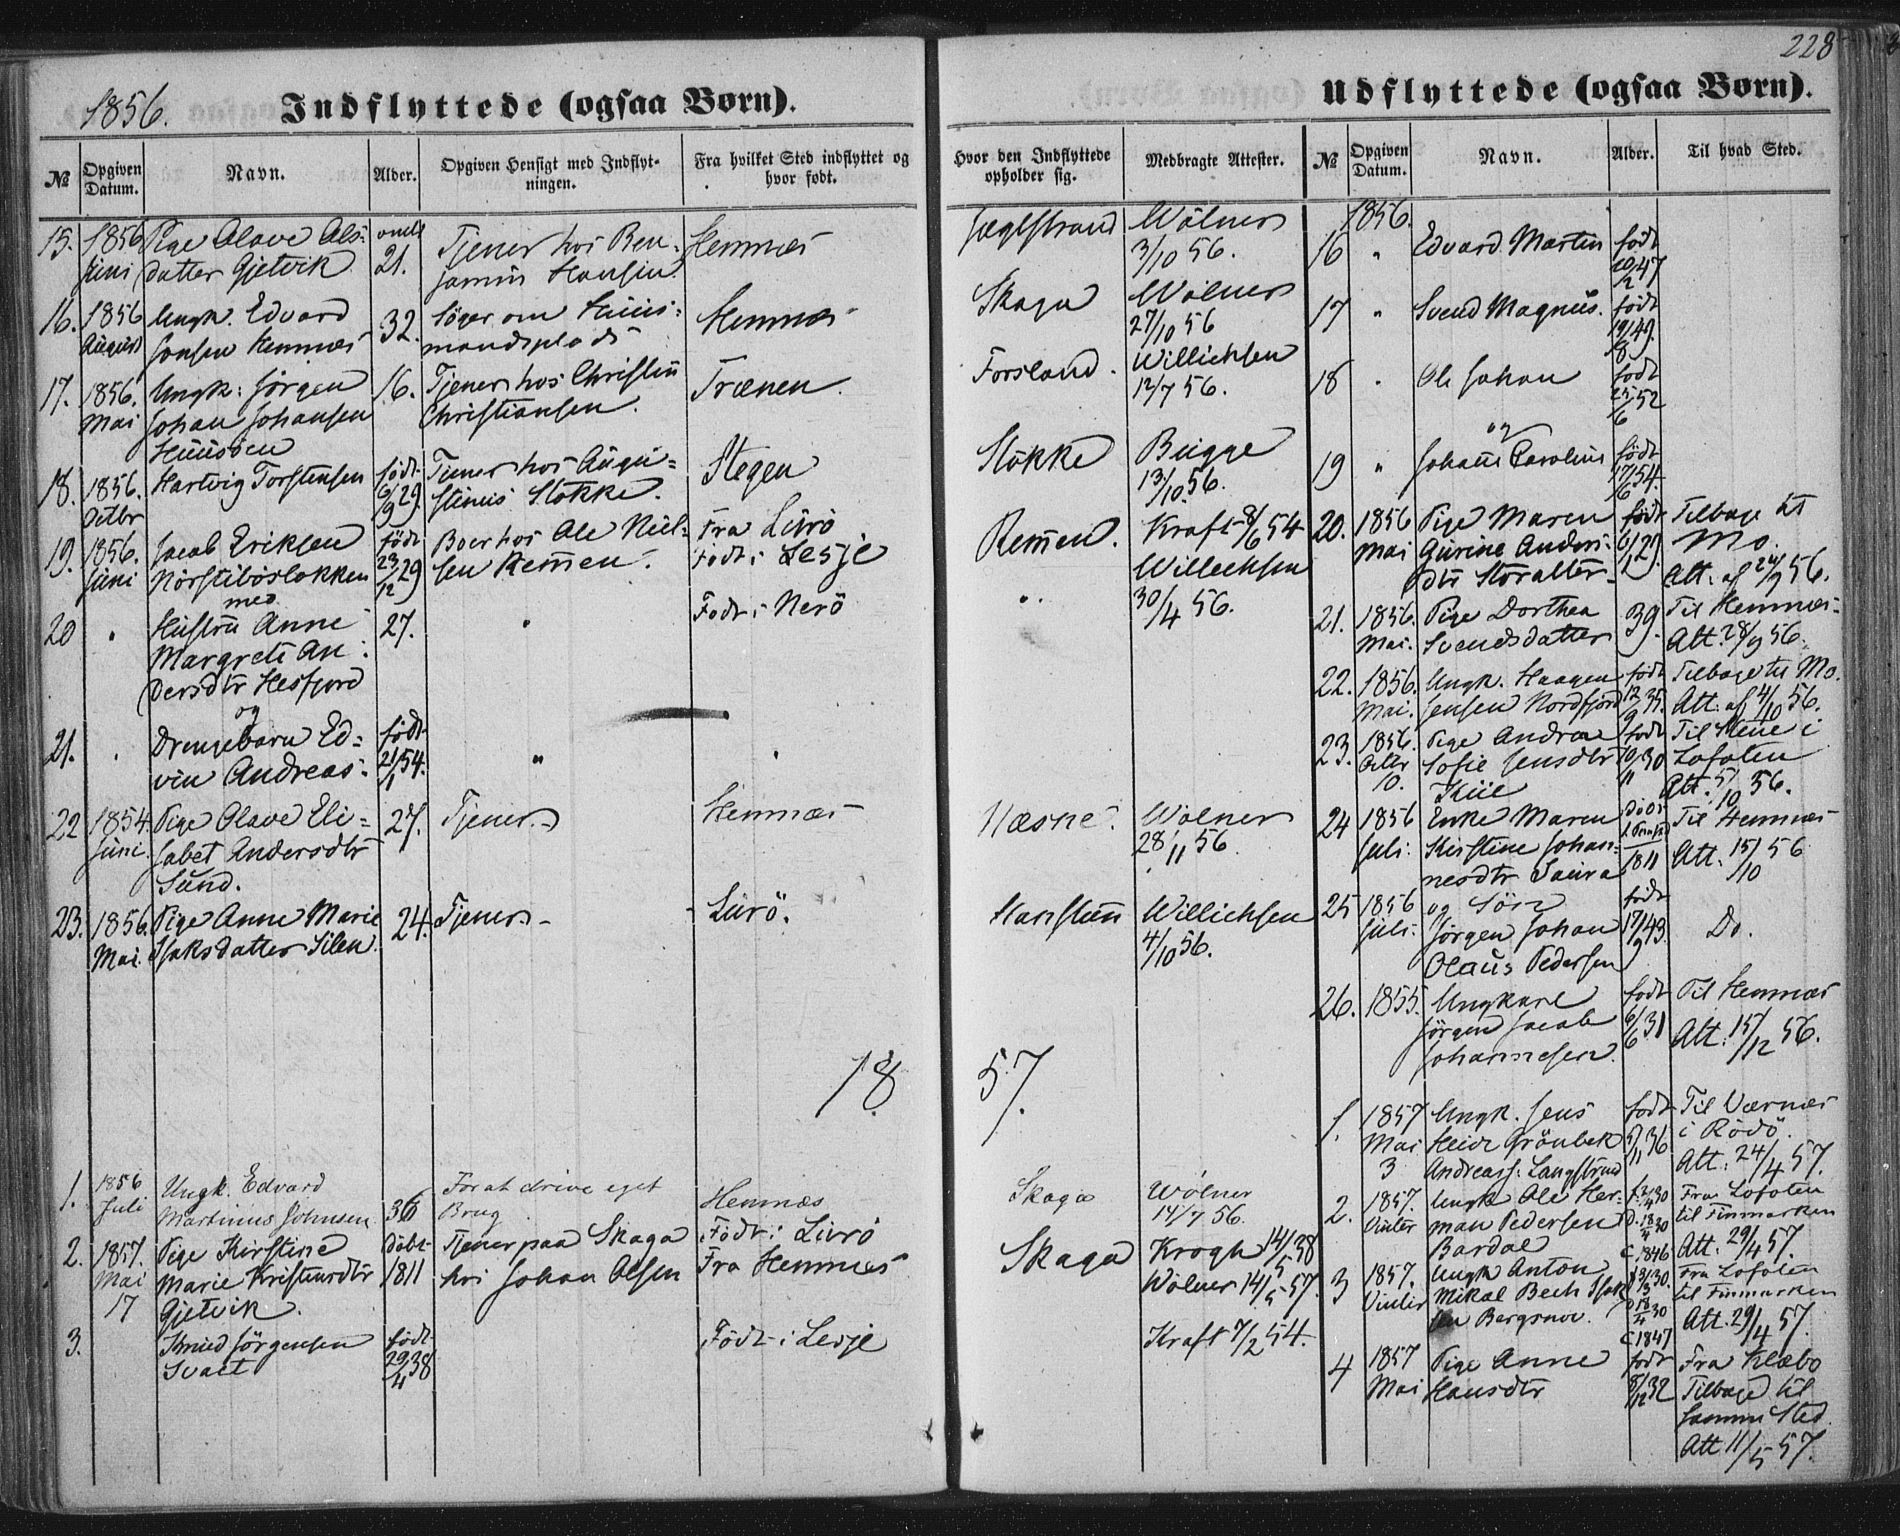 228
1856.
Indflyttede (ogsaa Børn).
№
Opgiven Datum.
Navn.
Alder.
Opgiven Hensigt med Indflyt-
ningen.
Fra hvilket Sted indflyttet og
hvor født.
Hvor den Indflyttede
opholder sig.
Medbragte Attester.
15. 1856 Pige Olave Ols- 21. Tjener hos Ben- Hemnæs
Juni datter Gjetvik jamin Hansen
Wölner
3/10 56.
16. 1856 Ungk. Edvard 32. Söger om Huus- Hemnæs
August Jonsen Hemnæs mandsplads
Skaga Wölner
27/10 56
17. 1856. Ungk: Jörgen 16. Tjener hos Christen Trænen.
Mai Johan Johansen Christiansen.
Huusöen
Forsland. Willichsen
12/7 56.
18. 1856. Hartvig Torstensen födt Tjener hos Augu- Stegen
Octbr 6/9 29. stinus Stokke.
Stokke Bugge
13/10 56.
19. 1856. Jacob Eriksen födt Boer hos Ole Niel- Fra Lurö
Juni Nörstebölökken 23/12 29 sen Remen. Födt i Lesje
Remen. Kraft 8/6 54
Willichsen
30/4 56.
med
20 " Hustru Anne 27. " Födt i Nerö
Margrete An-
dersdtr Hesfjord
og
21. " Drengebarn Ed- födt " "
vin Andreas 21/1 54.
22 1854. Pige Olave Eli- 27. Tjener Hemnæs
Juni sabet Andersdtr
Sund.
Næsne. Wölner
28/11 56
23. 1856. Pige Anne Marie 24. Tjener Lurö.
Mai Isaksdatter Silen.
Willichsen
4/10 56.
1857.
1. 1856 Ungk. Edvard 36 For at drive eget Hemnæs
Juli Martinus Johnsen Brug
Skaga Wölner
14/7 56.
2. 1857. Pige Kirstine Döbt Tjener paa Skaga Födt i Lurö
Mai Marie Kristensdtr 1811 hos Johan Olsen Fra Hemnæs
17 Gjetvik.
Skaga Krogh 14/5 38
Wölner 14/5 57.
3. Knud Jörgensen födt Födt i Lesje
29/4 38
Kraft 7/2 54.
Udflyttede (ogsaa Børn).
№
Opgiven Datum.
Navn.
Alder.
Til hvad Sted.
1856.
16 " Edvard Martin födt
20/12 47
17 " Svend Magnus. födt
19/8 49.
18 " Ole Johan födt
25/6 52
og
19 " Johan Carolius födt
17/6 54.
20. 1856 Pige Maren födt Tilbage til
Mai Gurine Anders- 6/1 29. Mo.
dtr Storalter Att. af 24/9 56.
21. 1856. Pige Dorthea 39. Til Hemnæs
Mai. Svendsdatter Att. 28/9 56.
22. 1856. Ungk. Haagen födt Tilbage til Mo.
Mai. Jensen Nordfjord 12/9 35. Att. af 4/10 56.
23. 1856. Pige Andrea födt Til Stene i
Octbr Sofie Jensdtr 10/11 30 Lofoten
10. Kiil Att. 5/10 56.
24 1856 Enke Maren Döbt Til Hemnæs
Juli Kirstine Johan- 1811 Att. 15/10 56
nesdtr Saura
25 1856 og Sön födt
Juli Jörgen Johan 17/9 43. Do.
Olaus Pedersen
26. 1855. Ungkarl födt Til Hemnæs
Jörgen Jacob 6/6 31 Att. 15/12 56.
Johannesen.
1. 1857 Ungk. Jens födt Til Værnæs
Mai Heide Grönbek 5/11 36 i Rödö.
3 Andreass. Langstrand Att. 24/4 57.
2. 1857. Ungk Ole Her- f. 2/4 30 Fra Lofoten
Vinter man Pedersen D. 18/4 30 til Finmarken
Bardal C 1846 Att. 29/4 57.
3 1857. Ungk Anton f 13/3 30. Fra Lofoten
Vinter Mikal Bech Isak- D 18/4 30 til Finmarken
sen Bergsnov. C 1847 Att. 29/4 57.
4 1857 Pige Anne födt Fra Klæbo
Mai Hansdtr 8/12 32 Tilbage til
samme Sted.
Att 11/5 57.